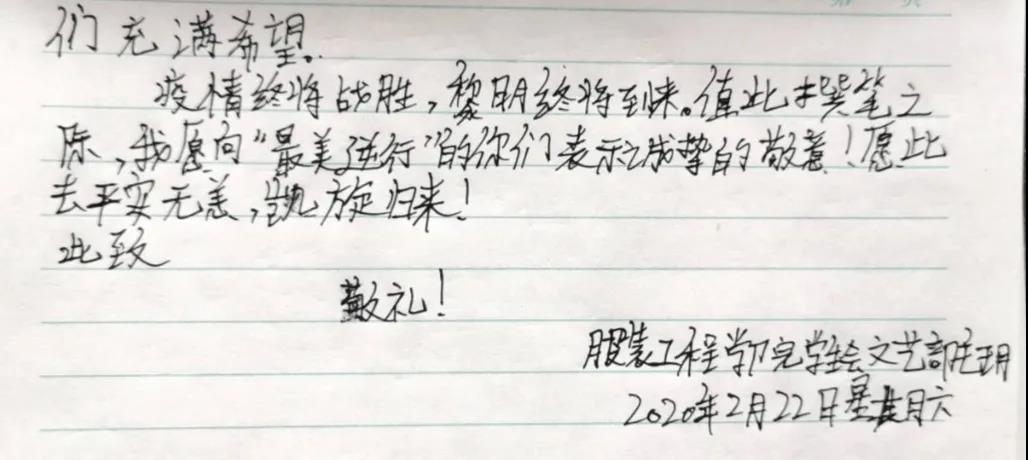 们充满希望。
疫情终将战胜，黎明终将到来。值此撰笔之
际，我愿向“最美逆行”的你们表示诚挚的敬意！愿此
去平安无恙，凯旋归来！
此致
敬礼！
服装工程学院学生会文艺部 玥
2020年2月22日星期六